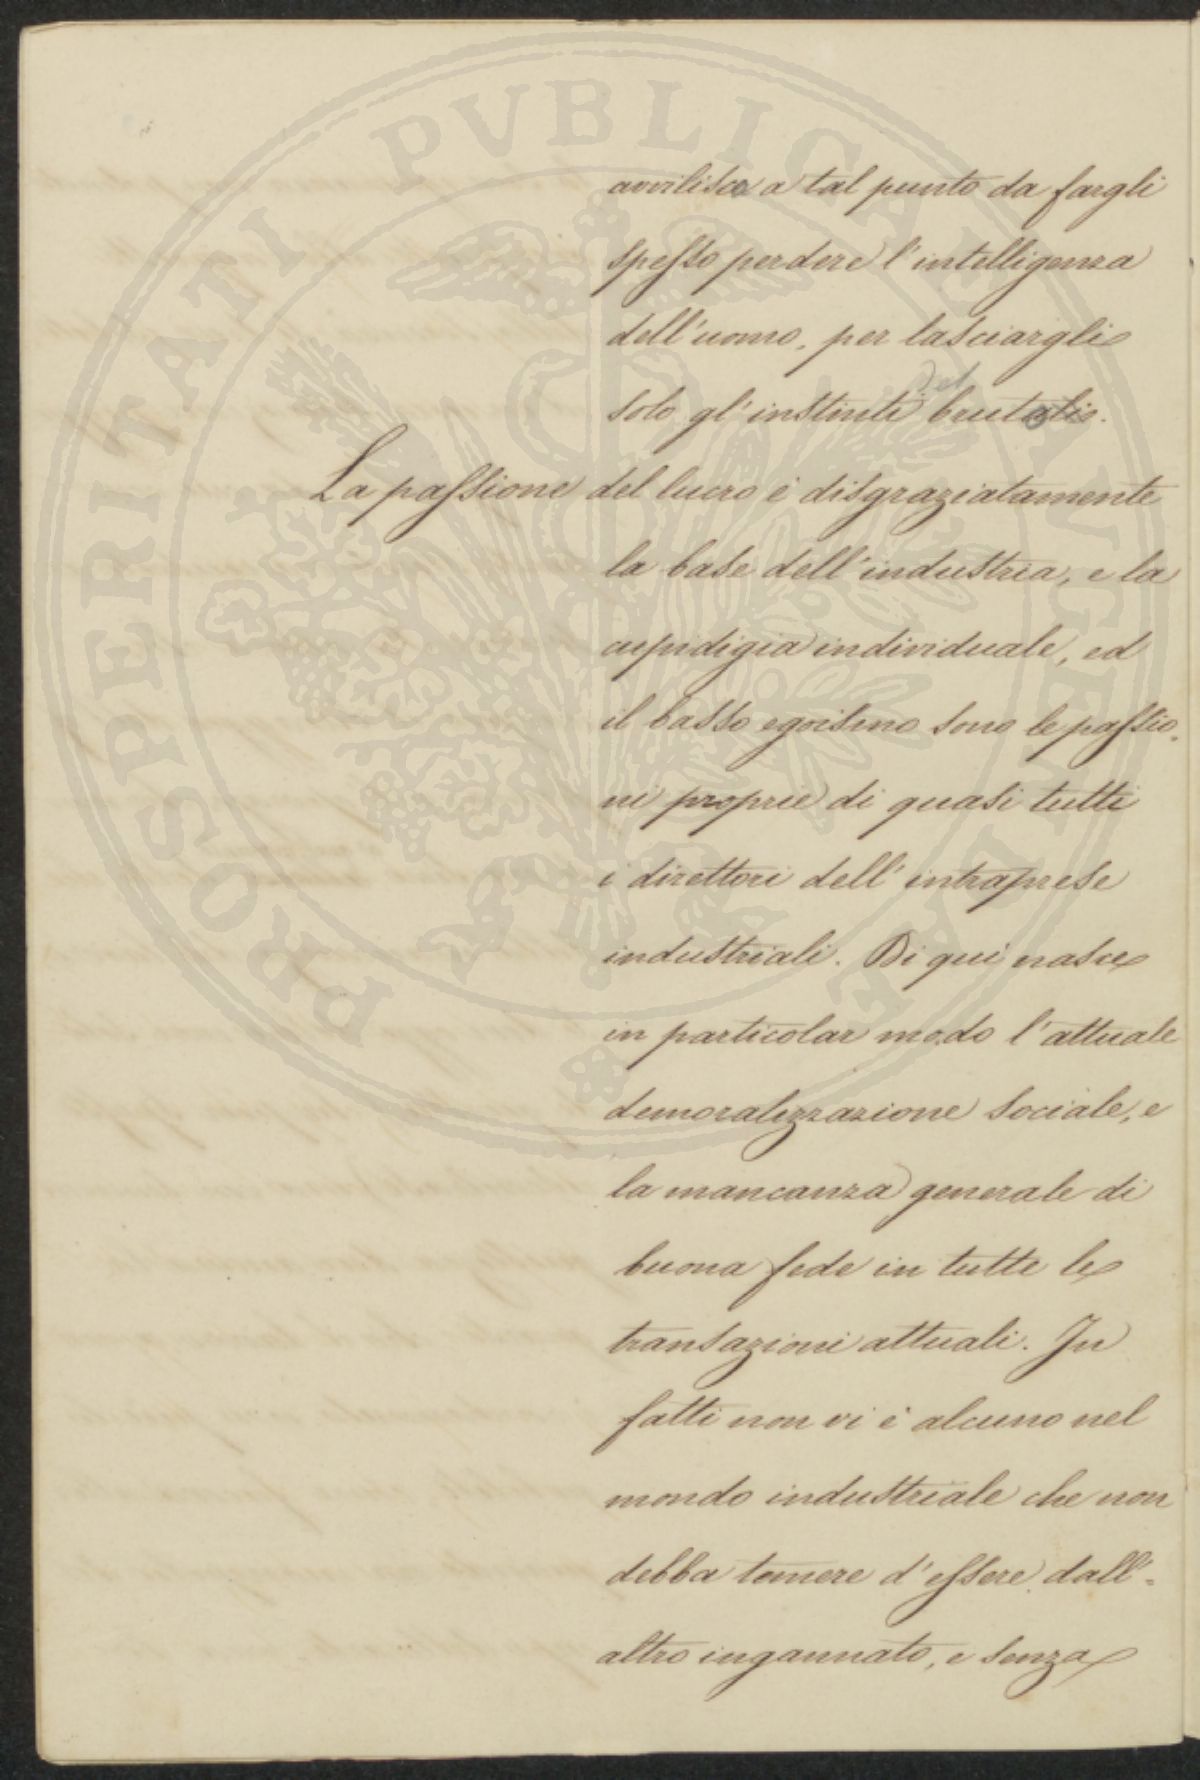 avvilisca a tal punto da fargli
spesso perdere l'intelligenza
dell'uomo, per lasciargli
del
solo gl'instinti brutali.
La passione del lucro è disgraziatamente
la base dell'industria, e la
cupidigia individuale, ed
il basso egoismo sono le passio-
ni proprie di quasi tutti
i direttori dell'intraprese
industriali. Di qui nasce
in particolar modo l'attuale
demoralizzazione sociale, e
la mancanza generale di
buona fede in tutte le
transazioni attuali. In
fatti non vi è alcuno nel
mondo industriale che non
debba temere d'essere dall'-
altro ingannato, e senza
PROSPERITATI PVBLICAE AVGENDAE